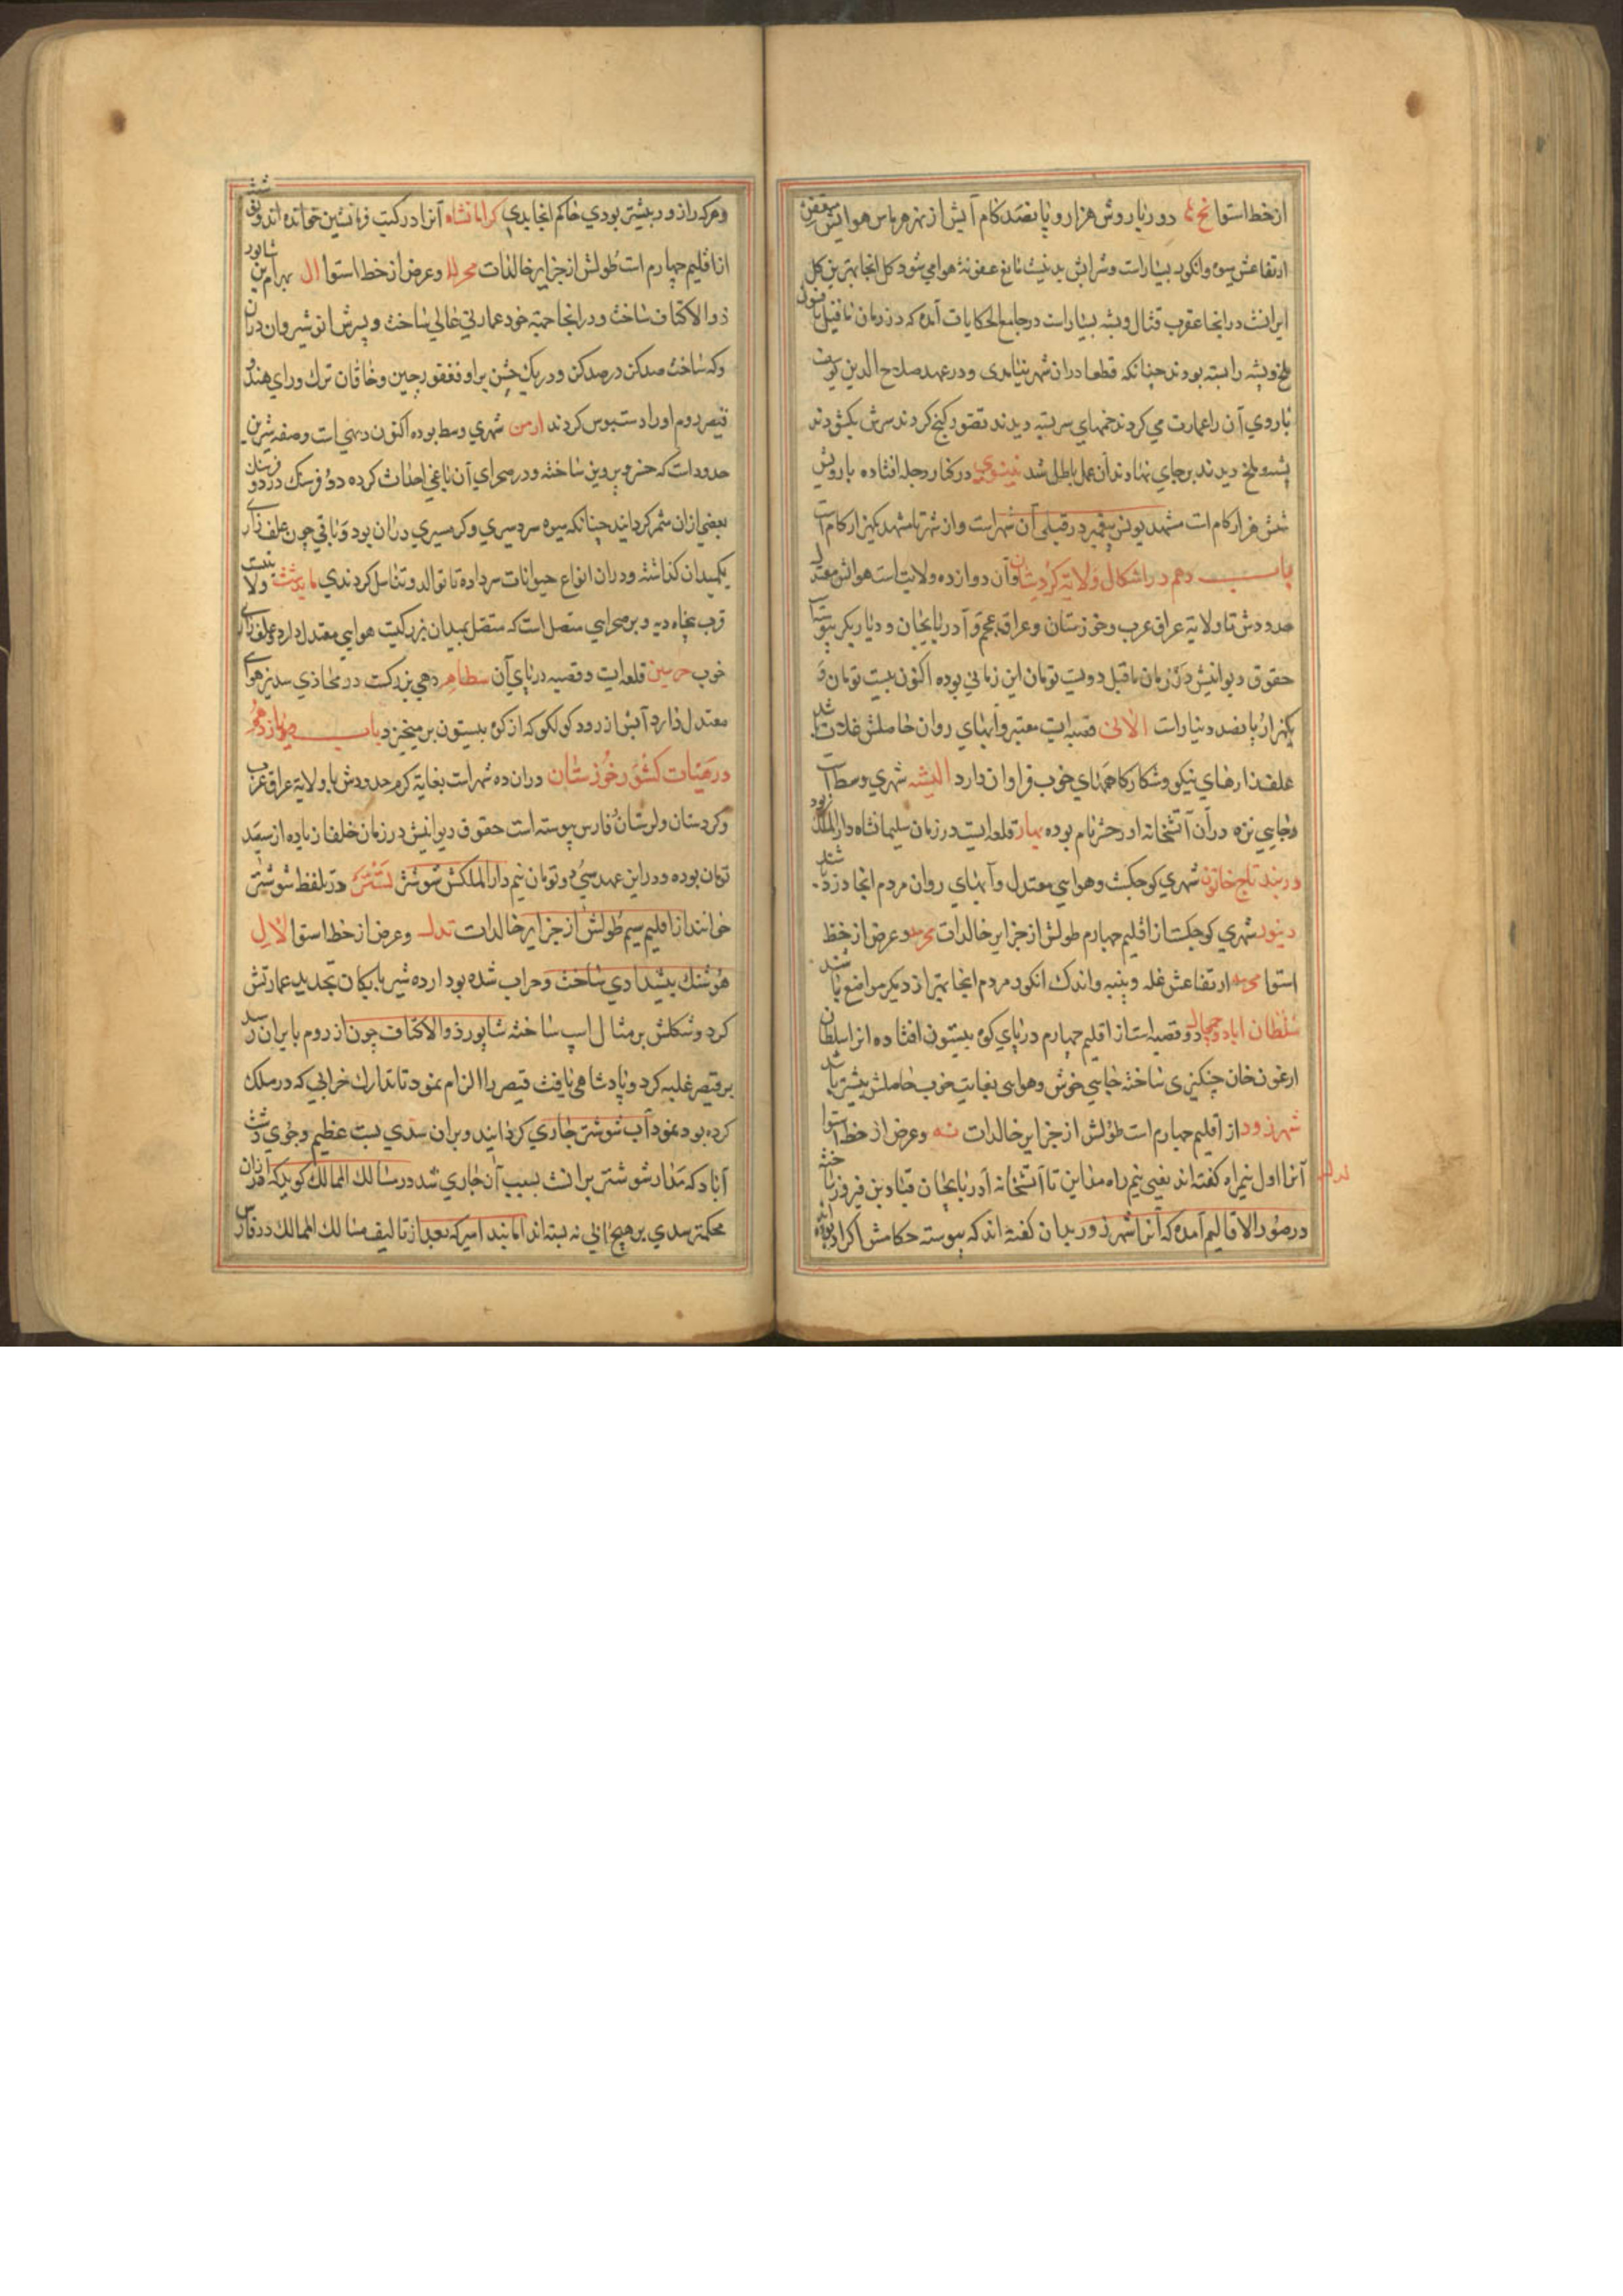 ازخط استوا دور باروش هزار و پانصد کام آبش از نهر هرماس هوایش متعفن
ارتفاعش میوه وانکور بسیار است وشرابش بد نیست مانع عفونة هوا می شود کل انجا بهترین کل
ایرانست در انجا عقرب قتال وپشه بسیار است در جامع الحکایات آمده که در زمان ماقبل بافسون
ملخ وپشه را بسته بودند چنانکه قطعا دران شهر نیامدی و درعهد صلاح الدین یوسف
باروی آن راعمارت می کردند خمهای سر بسته دیدند تصور کنج کردند سرش بکشودند
پشه وملخ دیدند برجای نهادند آن عمل باطل شد نینوی در کنار دجله افتاده باروش
شش هزار کام است مشهد یونس پیغمبر در قبلی آن شهر است واز شهر تا مشهد یکهزار کام است
باب دهم در اشکال ولایة کردستان وآن دوازده ولایت است هوایش معتدل
حدودش تا ولایة عراق عرب وخوزستان وعراق عجم وآدربایجان ودیار بکر پیوسته
حقوق دیوانیش در زمان ماقبل دویست تومان این زمانی بوده اکنون بیست تومان و
یکهزار پانصد دینار است الانی قصبه ایست معتبر وآبهای روان حاصلش غلات باشد
علفذارهای نیکو وشکارکاههای خوب فراوان دارد الیشه شهری وسط است
وجایی نزه درآن آتشخانه اردحش نام بوده بهار قلعه ایست در زمان سلیمانشاه دارالملک بود
دربند تاج خاتون شهری کوچکست وهوایی معتدل وآبهای روان مردم انجا دزد باشند
دینور شهری کوچکست از اقلیم چهارم طولش از جزایر خالدات وعرض از خط
استوا ارتفاعش غله وپنبه واندک انکور مردم انجا بهتر از دیکر مواضع باشند
سلطان اباد وجمجال دو قصبه است از اقلیم چهارم در پای کوه بیستون افتاده انرا سلطان
ارغون خان چنکیزی ساخته جایی خوش وهوایی بغایت خوب حاصلش بیشتر باشد
شهرزور از اقلیم چهارم است طولش از جزایر خالدات وعرض از خط استوا
آنرا اول نیم راه کفته اند یعنی نیم راه مداین تا آتشخانه آدربایجان قباد بن فیروز ساخته
در صور الاقالیم آمده که آنرا شهرزور بدان کفته اند که پیوسته حکامش اکراد بوده اند
وهرکه را زور بیشتر بودی حاکم انجا بدی کرمانشاه آنرا در کتب قرمانشین خوانده اند وشته
از اقلیم چهارم است طولش از جزایر خالدات وعرض از خط استوا بهرام بن شابور
ذو الاکتاف ساخت ودر انجا جهة خود عمارتی عالی ساخت وپسرش انوشیروان دران
دکه ساخت صدکز در صدکز ودر یک جشن براو فغفور چین وخاقان ترک ورای هند و
قیصر روم اورا دستبوس کردند ارمن شهری وسط بوده اکنون دیهی است وصفه شیرین
حدود است که خسرو پرویز ساخته ودر صحرای آن باغی احداث کرده دو فرسنک در دو فرسنک
بعضی ازان مثمر کردانید چنانکه میوه سردسیری وکرمسیری دران بود وباقی چون علف زاری
یکمیدان کذاشته ودران انواع حیوانات سر داده تا توالد وتناسل کردندی مایدشت ولایتیست
قرب پنجاه دیه وبر صحرایی متصل است که متصل بمیدان بزرکیست هوایی معتدل دارد وعلفزاری
خوب هرسین قلعه ایست وقصبه در پای آن سطاهر دهی بزرکست در محاذی سدنز هوای
معتدل دارد آبش از رود کولکو که از کوه بیستون برمیخیزد باب یازدهم
در هیات کشور خوزستان دران ده شهر است بغایة کرم حدودش با ولایة عراق عرب
وکردستان ولرستان وفارس پیوسته است حقوق دیوانیش در زمان خلفا زیاده از سیصد
تومان بوده ودر این عهد سی دو تومان نیم دارالملکش شوشتر تستر در تلفظ شوشتر
خوانند از اقلیم سیم طولش از جزایر خالدات وعرض از خط استوا
هوشنک پیشدادی ساخت وخراب شده بود ارده شیر بابکان تجدید عمارتش
کرد وشکلش بر مثال اسپ ساخته شابور ذو الاکتاف چون از روم بایران رسید
بر قیصر غلبه کرد وپادشاهی یافت قیصر را الزام نمود تا تدارک خرابی که در ملک
کرده بود نمود آب شوشتر جاری کردانید وبران سدی بست عظیم وجوی دشت
آباد که مدار شوشتر برانست بسبب آن جاری شد در مسالک الممالک کوید که ازان
محکمتر سدی بر هیچ آبی نه بسته اند اما بند امیر که بعد از تالیف مسالک الممالک در فارس